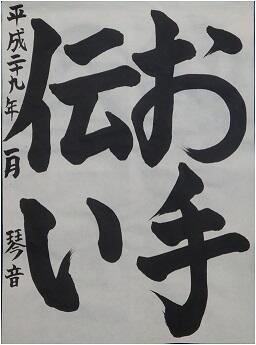 お手
伝い
平成二十九年 一月 琴音